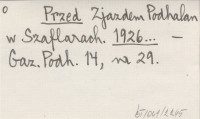 o Przed Zjazdem Podhalan
w Szaflarach. 1926... —
Gaz. Podh. 14, nr 29.